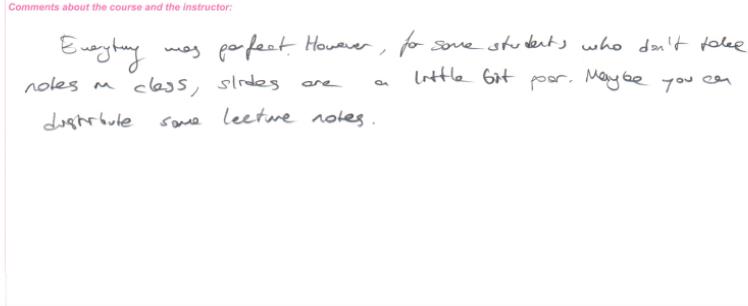 Comments about the course and the instructor:
Everything was perfect. However, for some students who don't take
notes in class, slides are a little bit poor. Maybe you can
distribute some lecture notes.